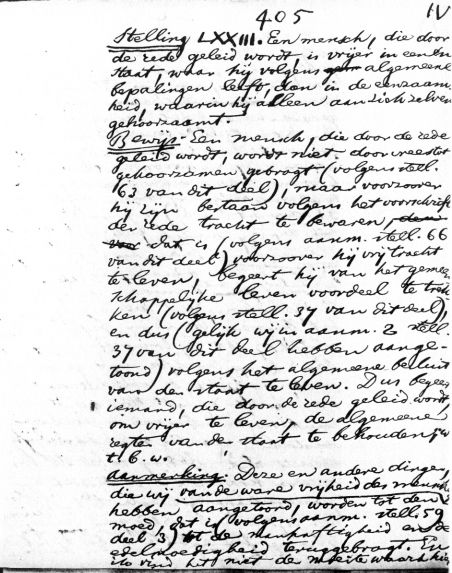 405 IV
Stelling LXXIII. Een mensch, die door
de rede geleid wordt, is vrijer in een
staat, waar hij volgens algemeene
bepalingen leeft, dan in de eenzaam-
heid, waarin hij alleen aan zich zelven
gehoorzaamt.
Bewijs. Een mensch, die door de rede
geleid wordt, wordt niet door vrees tot
gehoorzamen gebragt (volgens stell.
63 van dit deel), maar voorzoover
hij zijn bestaan volgens het voorschrift
der rede tracht te bewaren,
dat is (volgens aanm. stell. 66
van dit deel) voorzoover hij vrij tracht
te leven, begeert hij van het gemeen
schappelijke leven voordeel te trek
ken (volgens stell. 37 van dit deel),
en dus (gelijk wij in aanm. 2 stell.
37 van dit deel hebben aange-
toond) volgens het algemeene besluit
van den staat te leven. Dus begeert
iemand, die door de rede geleid wordt,
om vrijer te leven, de algemeene
regten van den staat te behouden, 'tw
t. b. w.
Aanmerking. Deze en andere dingen,
die wij van de ware vrijheid des mensch
hebben aangetoond, worden tot den
moed, dat is (volgens aanm. stell. 59
deel 3) tot de manhaftigheid en de
edelmoedigheid teruggebragt. En
vind het niet de moeite waard hier